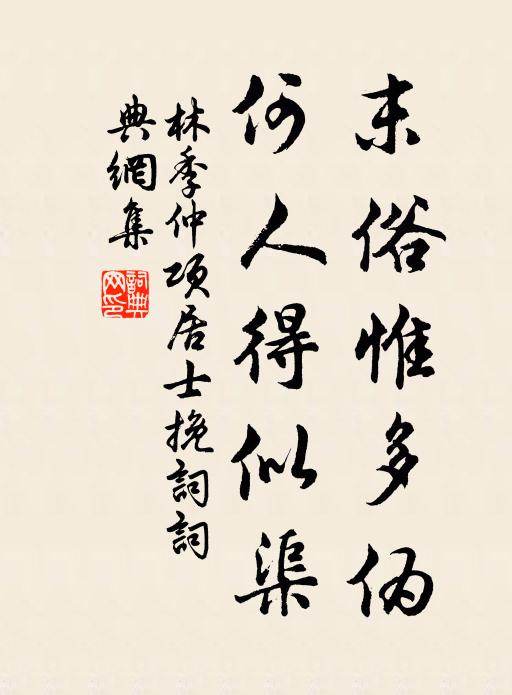 末俗惟多伪
何人得似渠
林季仲项居士挽詞詞
典網集
詞典網印